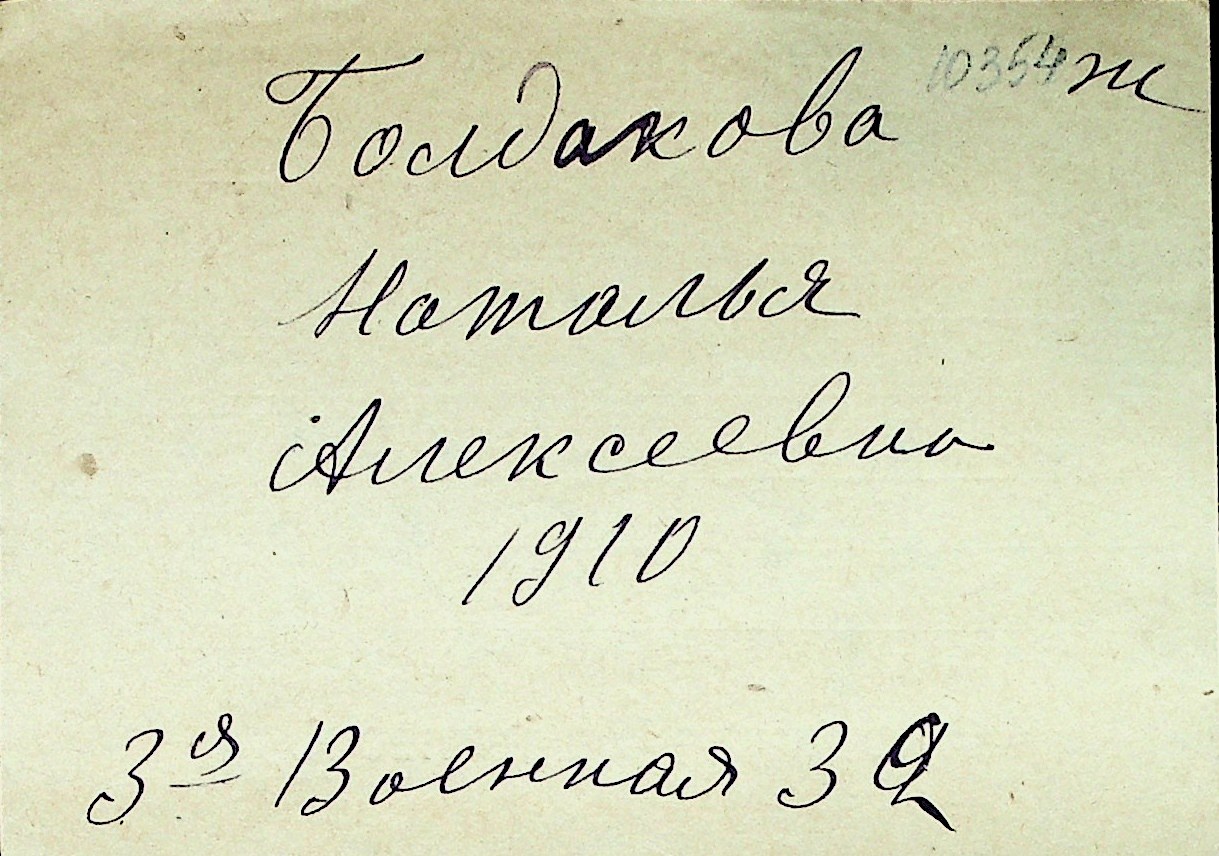 10354 ж
Болдакова
Наталья
Алексеевна
1910
3я Военная 32